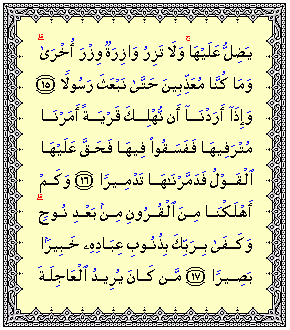 يَضِلُّ عَلَيْهَا ۚ وَلَا تَزِرُ وَازِرَةٌ وِزْرَ أُخْرَىٰ ۗ
وَمَا كُنَّا مُعَذِّبِينَ حَتَّىٰ نَبْعَثَ رَسُولًا ١٥
وَإِذَآ أَرَدْنَآ أَن نُّهْلِكَ قَرْيَةً أَمَرْنَا
مُتْرَفِيهَا فَفَسَقُوا۟ فِيهَا فَحَقَّ عَلَيْهَا
ٱلْقَوْلُ فَدَمَّرْنَـٰهَا تَدْمِيرًا ١٦ وَكَمْ
أَهْلَكْنَا مِنَ ٱلْقُرُونِ مِنۢ بَعْدِ نُوحٍ ۗ
وَكَفَىٰ بِرَبِّكَ بِذُنُوبِ عِبَادِهِۦ خَبِيرًۢا
بَصِيرًا ١٧ مَّن كَانَ يُرِيدُ ٱلْعَاجِلَةَ